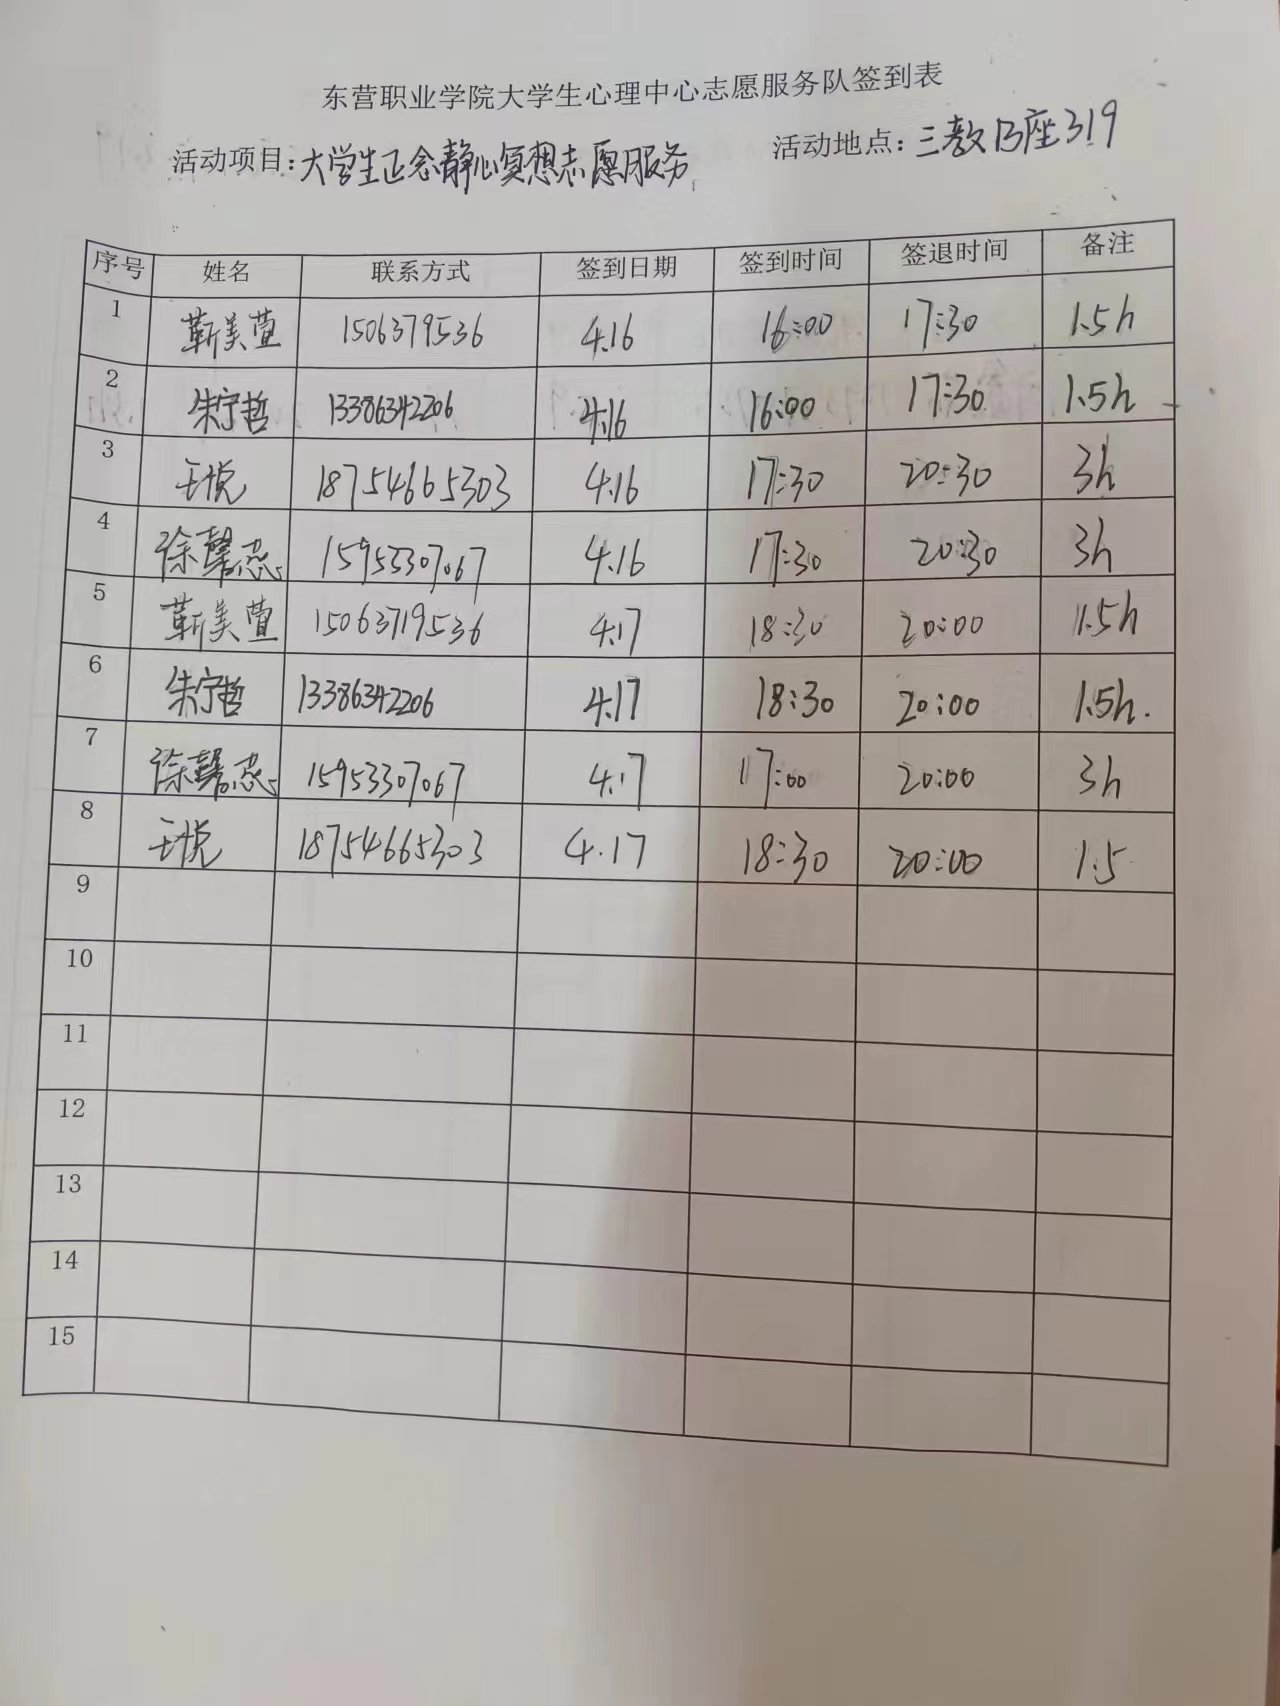 东营职业学院大学生心理中心志愿服务队签到表
活动项目：大学生正念静心冥想志愿服务 活动地点：三教B座319
序号 姓名 联系方式 签到日期 签到时间 签退时间 备注
1 靳美萱 1506379536 4.16 16:00 17:30 1.5h
2 朱宁哲 13386342206 4.16 16:00 17:30 1.5h
3 王悦 18754665303 4.16 17:30 20:30 3h
4 徐馨蕊 15953307067 4.16 17:30 20:30 3h
5 靳美萱 15063719536 4.17 18:30 20:00 1.5h
6 朱宁哲 13386342206 4.17 18:30 20:00 1.5h.
7 徐馨蕊 15953307067 4.17 17:00 20:00 3h
8 王悦 18754665303 4.17 18:30 20:00 1.5
9
10
11
12
13
14
15